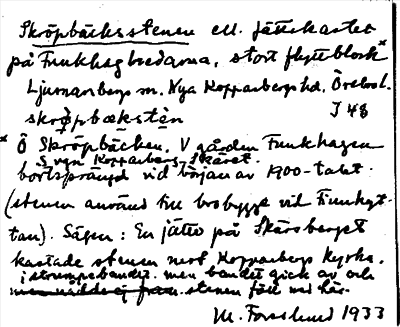 Skröpbäcksstenen ell. Jättekastet
på Funkhagbredarna, stort flyttblock x
Ljusnarsbergs sn. Nya Kopparbergs hd, Örebro l.
skrǫpbækstèn J 48
x Ö Skröpbäcken, V gården Funkhagen
S vgn Kopparberg-Skäret.
bortsprängd vid början av 1900-talet
(stenen använd till brobygge vid Finnhyt-
tan). Sägen: En jätte på Skärsberget
kastade stenen mot Kopparbergs kyrka.
i strumpebandet, men bandet gick av och
stenen föll ned här.
M. Forslund 1933